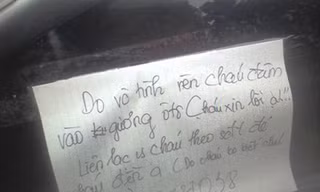 Do vô tình nên cháu đâm
vào gương ôtô (cháu xin lỗi ạ!"
Liên lạc vs cháu theo số đt để
đền ạ (Do cháu ko biết